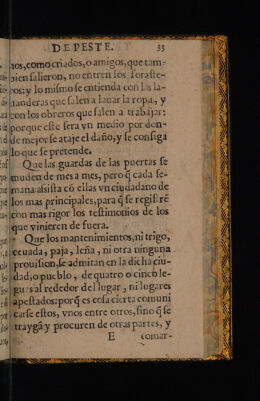 DE PESTE. 33
nos, como criados, o amigos, que tam-
bien salieron, no entren los foraste-
ros: y lo mismo se entienda con las la-
uanderas que salen a lauar la ropa, y
con los obreros que salen a trabajar:
porque este sera vn medio por don-
de mejor se ataje el daño, y se consiga
lo que se pretende.
Que las guardas de las puertas se
muden de mes a mes, pero q̃ cada se-
mana assista cõ ellas vn ciudadano de
los mas principales, para q̃ se registrẽ
con mas rigor los testimonios de los
que vinieren de fuera.
Que los mantenimientos, ni trigo,
ceuada, paja, leña, ni otra ninguna
prouision, se admitan en la dicha ciu-
dad, o pueblo, de quatro o cinco le-
guas al rededor del lugar, ni lugares
apestados: porq̃ es cosa cierta comuni
carse estos, vnos entre otros, sino q̃ se
traygã y procuren de otras partes, y
E comar-